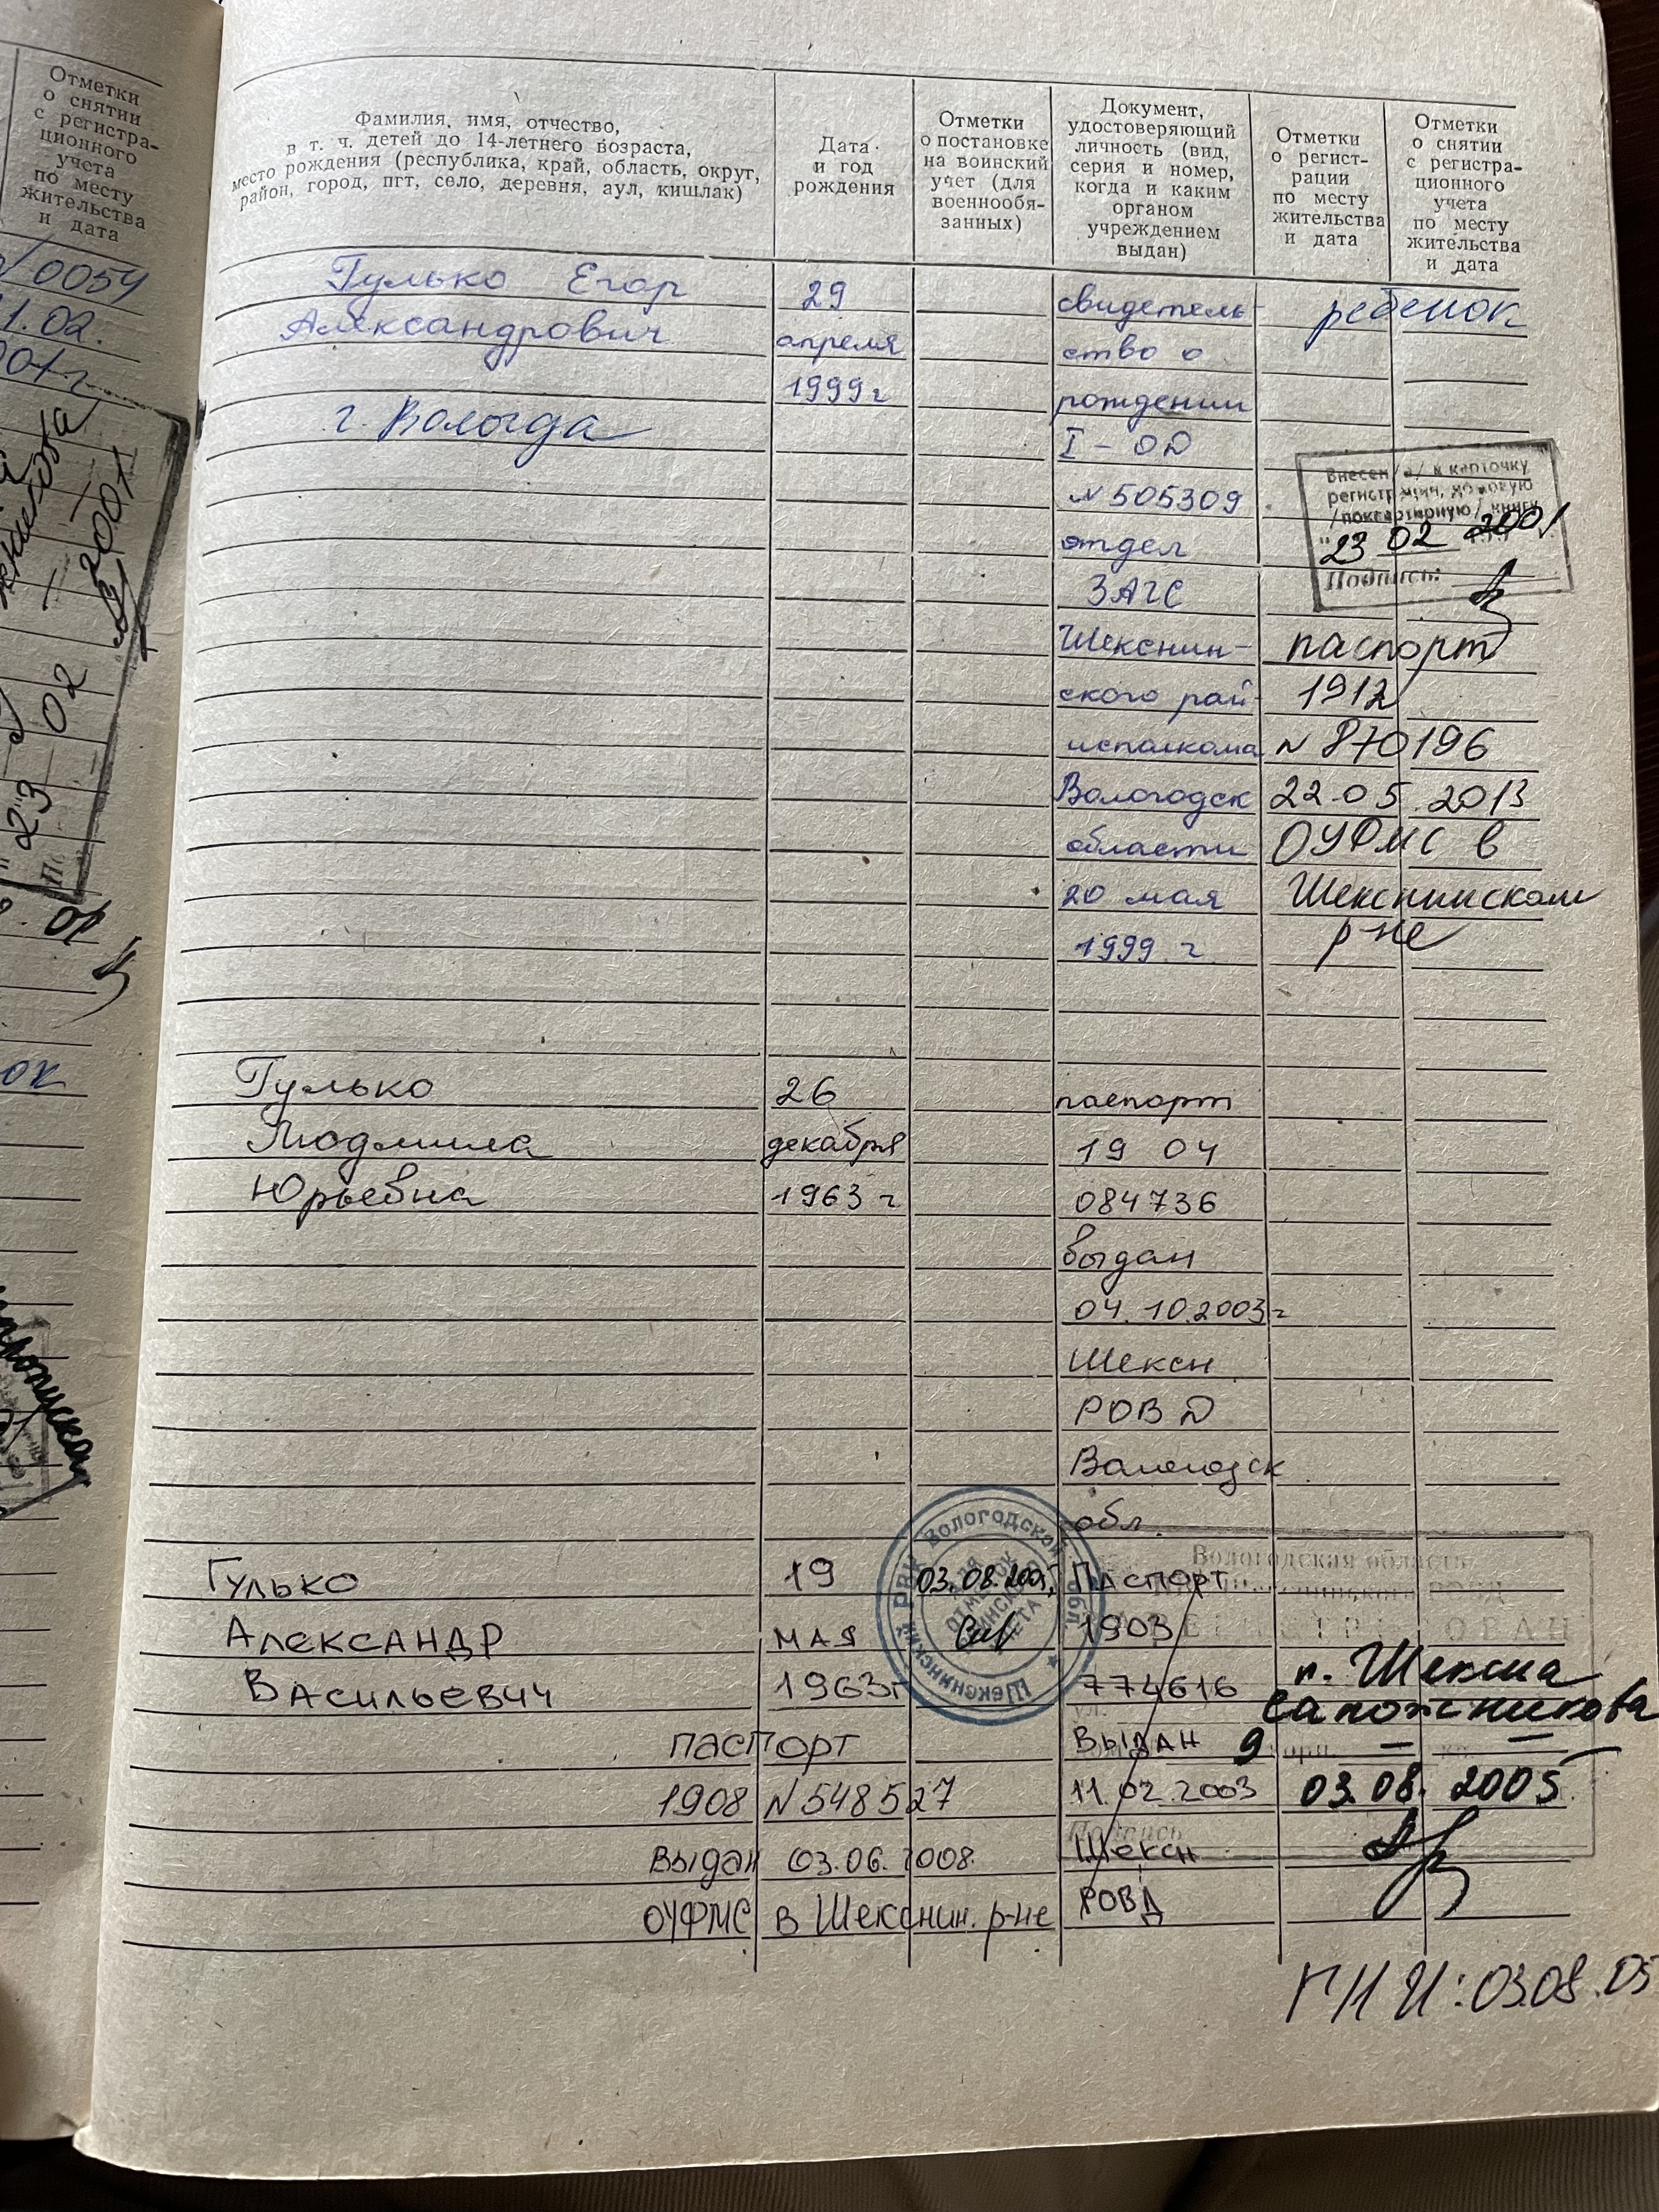 Отметки
о снятии
с регистра-
ционного
учета
по месту
жительства
и дата
0054
1.02.
Фамилия, имя, отчество,
в т. ч. детей до 14-летнего возраста,
место рождения (республика, край, область, округ,
район, город, пгт, село, деревня, аул, кишлак)
Дата
и год
рождения
Отметки
о постановке
на воинский
учет (для
военнообя-
занных)
Документ,
удостоверяющий
личность (вид,
серия и номер,
когда и каким
органом
учреждением
выдан)
Отметки
о регист-
рации
по месту
жительства
и дата
Отметки
о снятии
с регистра-
ционного
учета
по месту
жительства
и дата
Гулько Егор
Александрович
г. Вологда
29
апреля
1999 г
свидетель-
ство о
рождении
I - ОД
N 505309
отдел
ЗАГС
Шекснин-
ского рай
исполкома
Вологодск
области
20 мая
1999 г.
ребенок
Внесен /а/ в карточку
регистрации, домовую
/поквартирную/ книгу
23 02 2001
Подпись:
паспорт
1912
N 870196
22.05.2013
ОУФМС в
Шекснинском
р-не
Гулько
Людмила
Юрьевна
26
декабря
1963 г
паспорт
19 04
084736
выдан
04.10.2003г
Шексн
РОВД
Вологодск
обл.
Гулько
Александр
Васильевич
19
мая
1963г
03.08.2005
Шекснинский РВК Вологодской обл.
Паспорт
1903
774616
выдан
11.02.2003
Шексн
РОВД
Вологодская область
п. Шексна
Сапожникова
9 — —
03.08. 2005
Подпись
паспорт
1908 N 548527
выдан 03.06.2008
ОУФМС в Шекснин. р-не
ГНИ: 03.08.05
23 02 2001